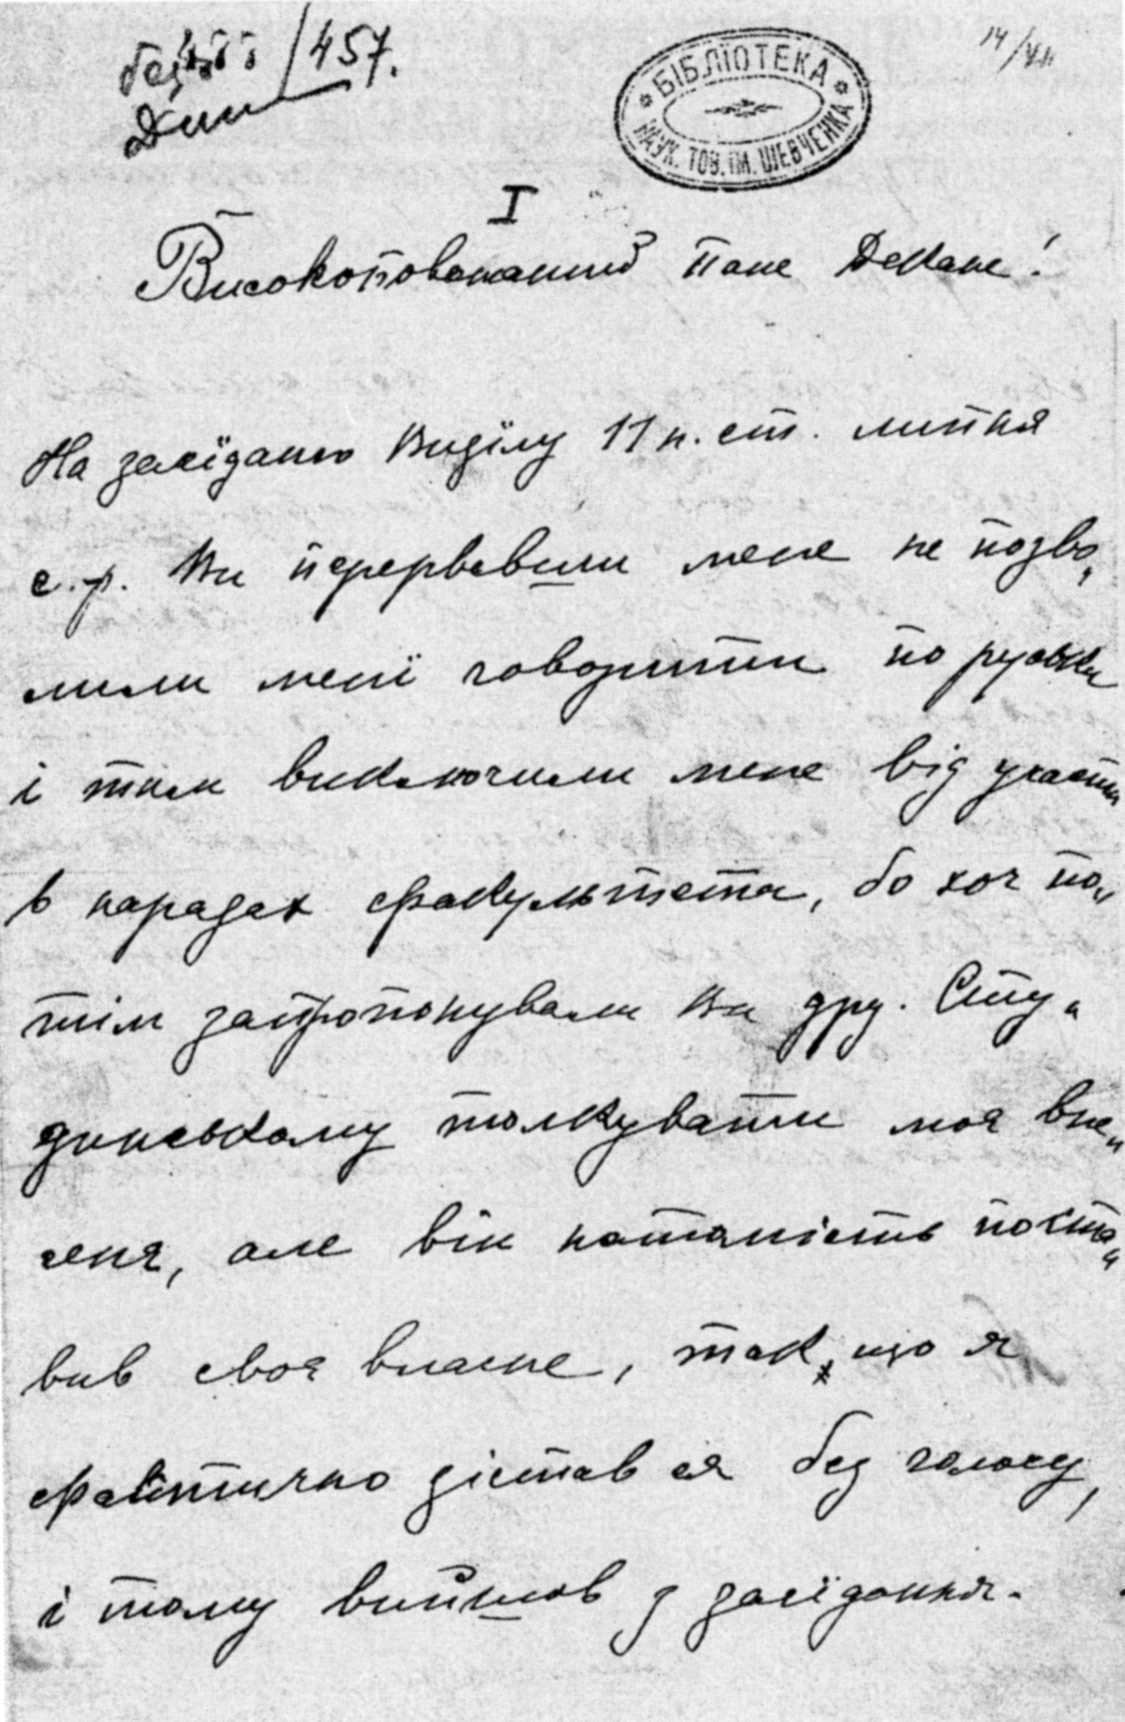 /457.
БІБЛІОТЕКА
НАУК. ТОВ. ІМ. ШЕВЧЕНКА
14/VII
I
Високоповажаний пане Декане!
На засїданю Виділу 11 н. ст. липня
с. р. Ви перервавши мене не позво„
лили мені говорити по руськи
і тим виключили мене від участи
в нарадах факультета, бо хоч по„
тім запропонували Ви дру. Сту„
диньскому толкувати моя вне„
сеня, але він натомість поста„
вив своя власне, так, що я
фактично дістав ся без голосу,
і тому вийшов з засїдання.